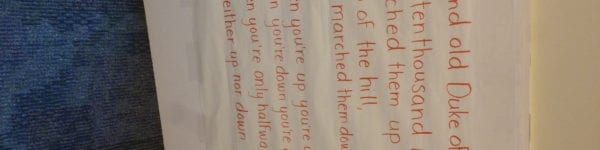 nd old Duke of
tenthousand
ched them up
of the hill,
marched them dow
n you're up you're u
n you're down you're
n you're only halfwa
either up nor down